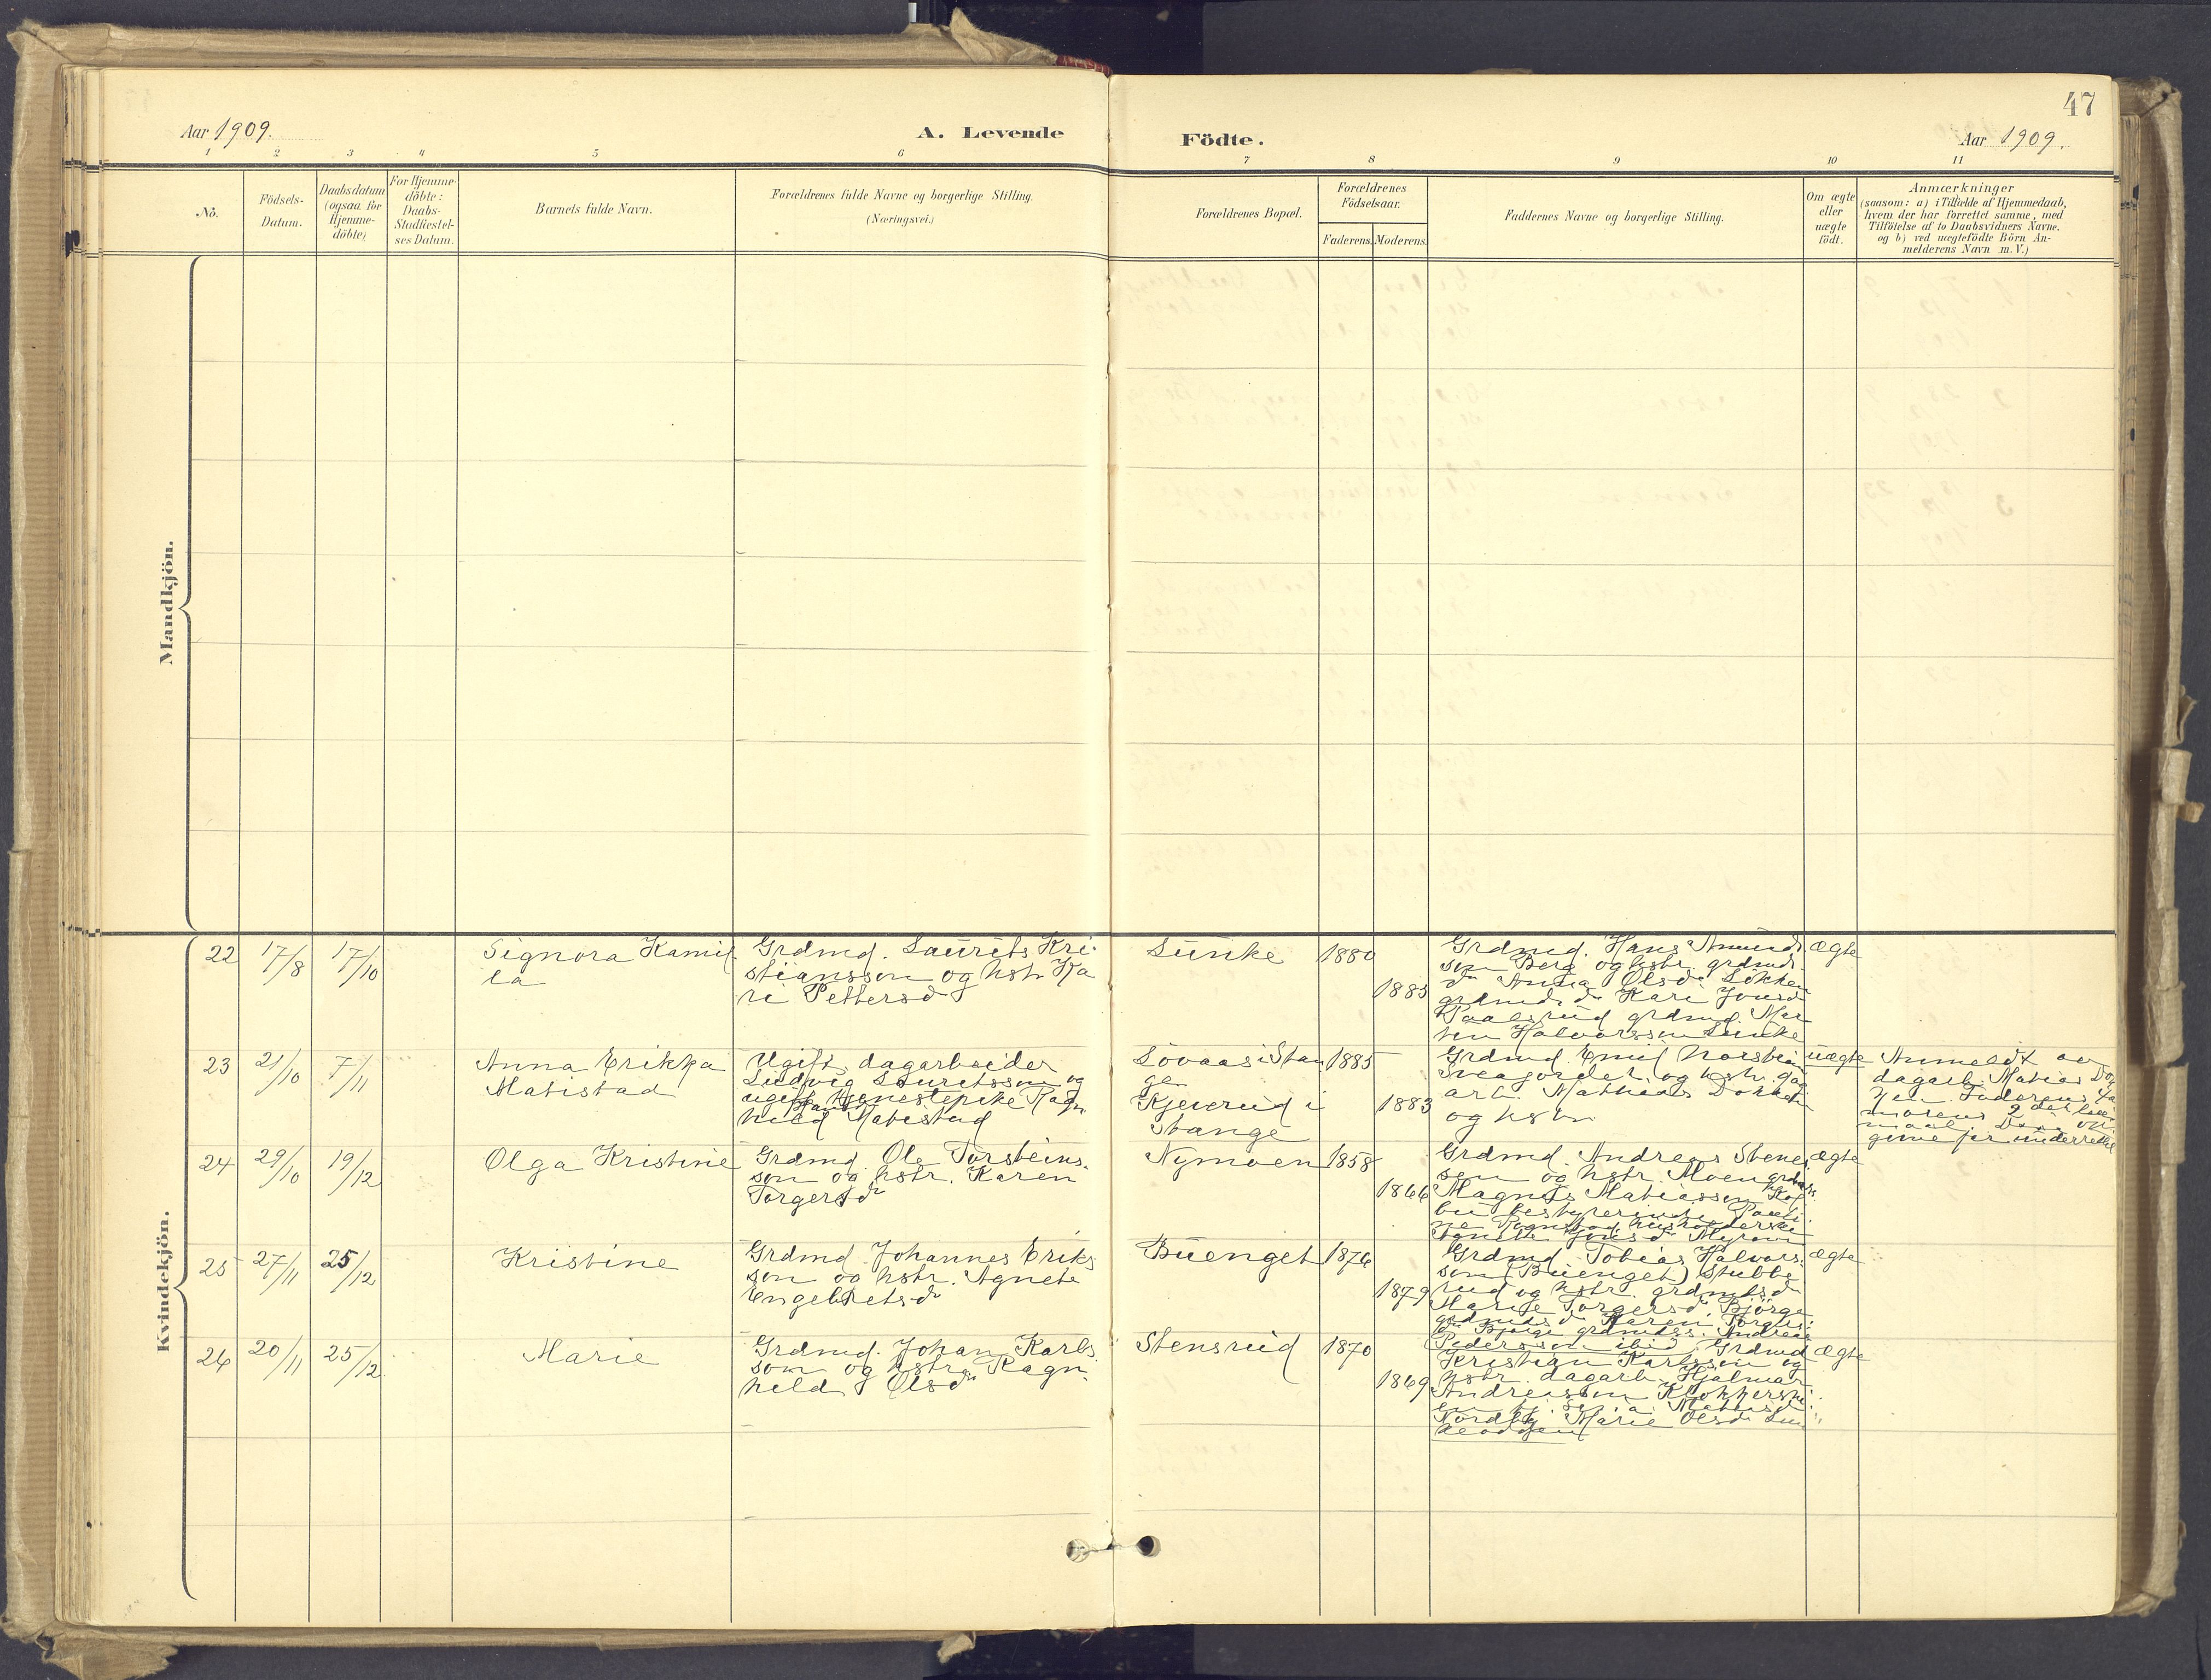 47
Aar 1909.
A. Levende
Födte.
Aar 1909.
1 2 3 4 5 6 7 8 9 10 11
No.
Födsels-
Datum.
Daabsdatum
(ogsaa for
Hjemme-
döbte)
For Hjemme-
döbte:
Daabs-
Stadfæstel-
ses Datum.
Barnets fulde Navn.
Forældrenes fulde Navne og borgerlige Stilling.
(Næringsvei.)
Forældrenes Bopæl.
Forældrenes
Födselsaar.
Faderens. Moderens.
Faddernes Navne og borgerlige Stilling.
Om ægte
eller
uægte
födt.
Anmærkninger
(saasom: a) i Tilfælde af Hjemmedaab,
hvem der har forrettet samme, med
Tilföielse af to Daabsvidners Navne.
og b) ved uægtefödte Börn An-
melderens Navn m. V.)
Mandkjön.
Kvindekjön.
22 17/8 17/10
Signora Kamil
la
Grdmd. Laurits Kri-
stiansson og hstr. Ka
ri Pettersd
Lunke
1880
1885
Grdmd. Hans Amunds
son Berg og hstr. grdmds
dr Anna Olsdr Løkken
grdmds dr Kari Jonsd
Paalsrud grdmd. Mar
tin Halvorssen Lunke
ægte
23 21/10 7/11
Anna Erikka
Matistad
Ugift dagarbeider
Ludvig Lauritssøn og
ugift tjenestepike Ragn
hild Matistad
Lovaas i Stan
ge
Kjeverud i
Stange
1885
1883
Grdmd. Emil Torstein
Sveagordet og hstr. dag
arb. Mathias Dokken
og hstr
uægte
Anmeldt av
dagarb. Matias Dok
ken. Faderens 4de
morens 2det leie
maal.
24 29/10 19/12
Olga Kristine
Grdmd. Ole Torsteins.
son og hstr. Karen
Torgersdr
Nymoen
1858
1866
Grdmd. Andreas Stenes
son og hstr. Moen grdm
Magnus Matiassen Kol
bu bestyrerinde Pauli
ægte
25 27/11 25/12
Kristine
Grdmd. Johannes Eriks
son og hstr. Agnete
Engebretsdr
Buenget
1876
1879
Grdmd. Tobias Halvors.
son (Buenget) Stubbe
rud og hstr. grdmdsd
Marie Torgersd. Bjørge
grdmdsdr Karen Torgers.
dr Bjørge grdmdss. Andreas
Pedersson ibid.
ægte
26 20/11 25/12
Marie
Grdmd. Johan Karls
son og hstr. Ragn
hild Olsdr
Stensrud
1870
1869
Grdmd
Kristian Karlsson og
hstr. dagarb. Hjalmar
Andreassen Klokkerste
Nordby Marie Olsd
ægte